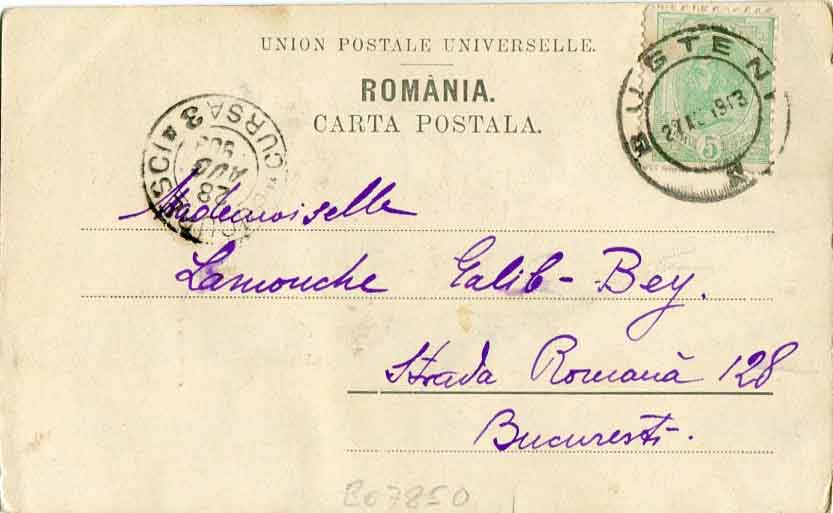 UNION POSTALE UNIVERSELLE.
ROMÂNIA.
CARTA POSTALA.
BUSTENI
5
CURSA 3
28
AUG
Mademoiselle
Lamouche Galib-Bey.
Strada Romană 128
Bucuresti.
B07850